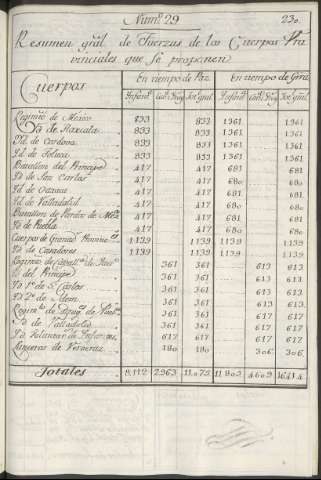 Num.º 29
230.
Resumen grãl de Fuerzas de los Cuerpos Pro
vinciales que se proponen
Cuerpos En tiempo de Paz En tiempo de Grrã
Ynfant.ª Cab.ª Drag. Tot. gral Ynfant.ª Cab.ª Drag. Tot. gral
Regimto de México 833 833 1361 1361
Yd de Tlaxcala 833 833 1361 1361
Yd de Cordova 833 833 1361 1361
Yd de Toluca 833 833 1361 1361
Batallon del Principe 417 417 681 681
Yd de San Carlos 417 417 680 680
Yd de Oaxaca 417 417 681 681
Yd de Valladolid 417 417 680 680
Batallon de Pardos de Mexº 417 417 681 681
Yd de Puebla 417 417 680 680
Cuerpo de Granad.s Provinc.s 1139 1139 1139 1139
Yd de Cazadores 1139 1139 1139 1139
Regimto de Cavall.ª de 361 361 613 613
Yd del Principe 361 361 613 613
Yd 1º de S. Carlos 361 361 613 613
Yd 2º de Ydem 361 361 613 613
Regim.to de Drag.s de 361 361 617 617
Yd de Valladolid 361 361 617 617
Yd 617 617 617 617
Lanceros de Veracruz 180 180 306 306
Totales 8,112 2,963 11,075 11,803 4,609 16,414